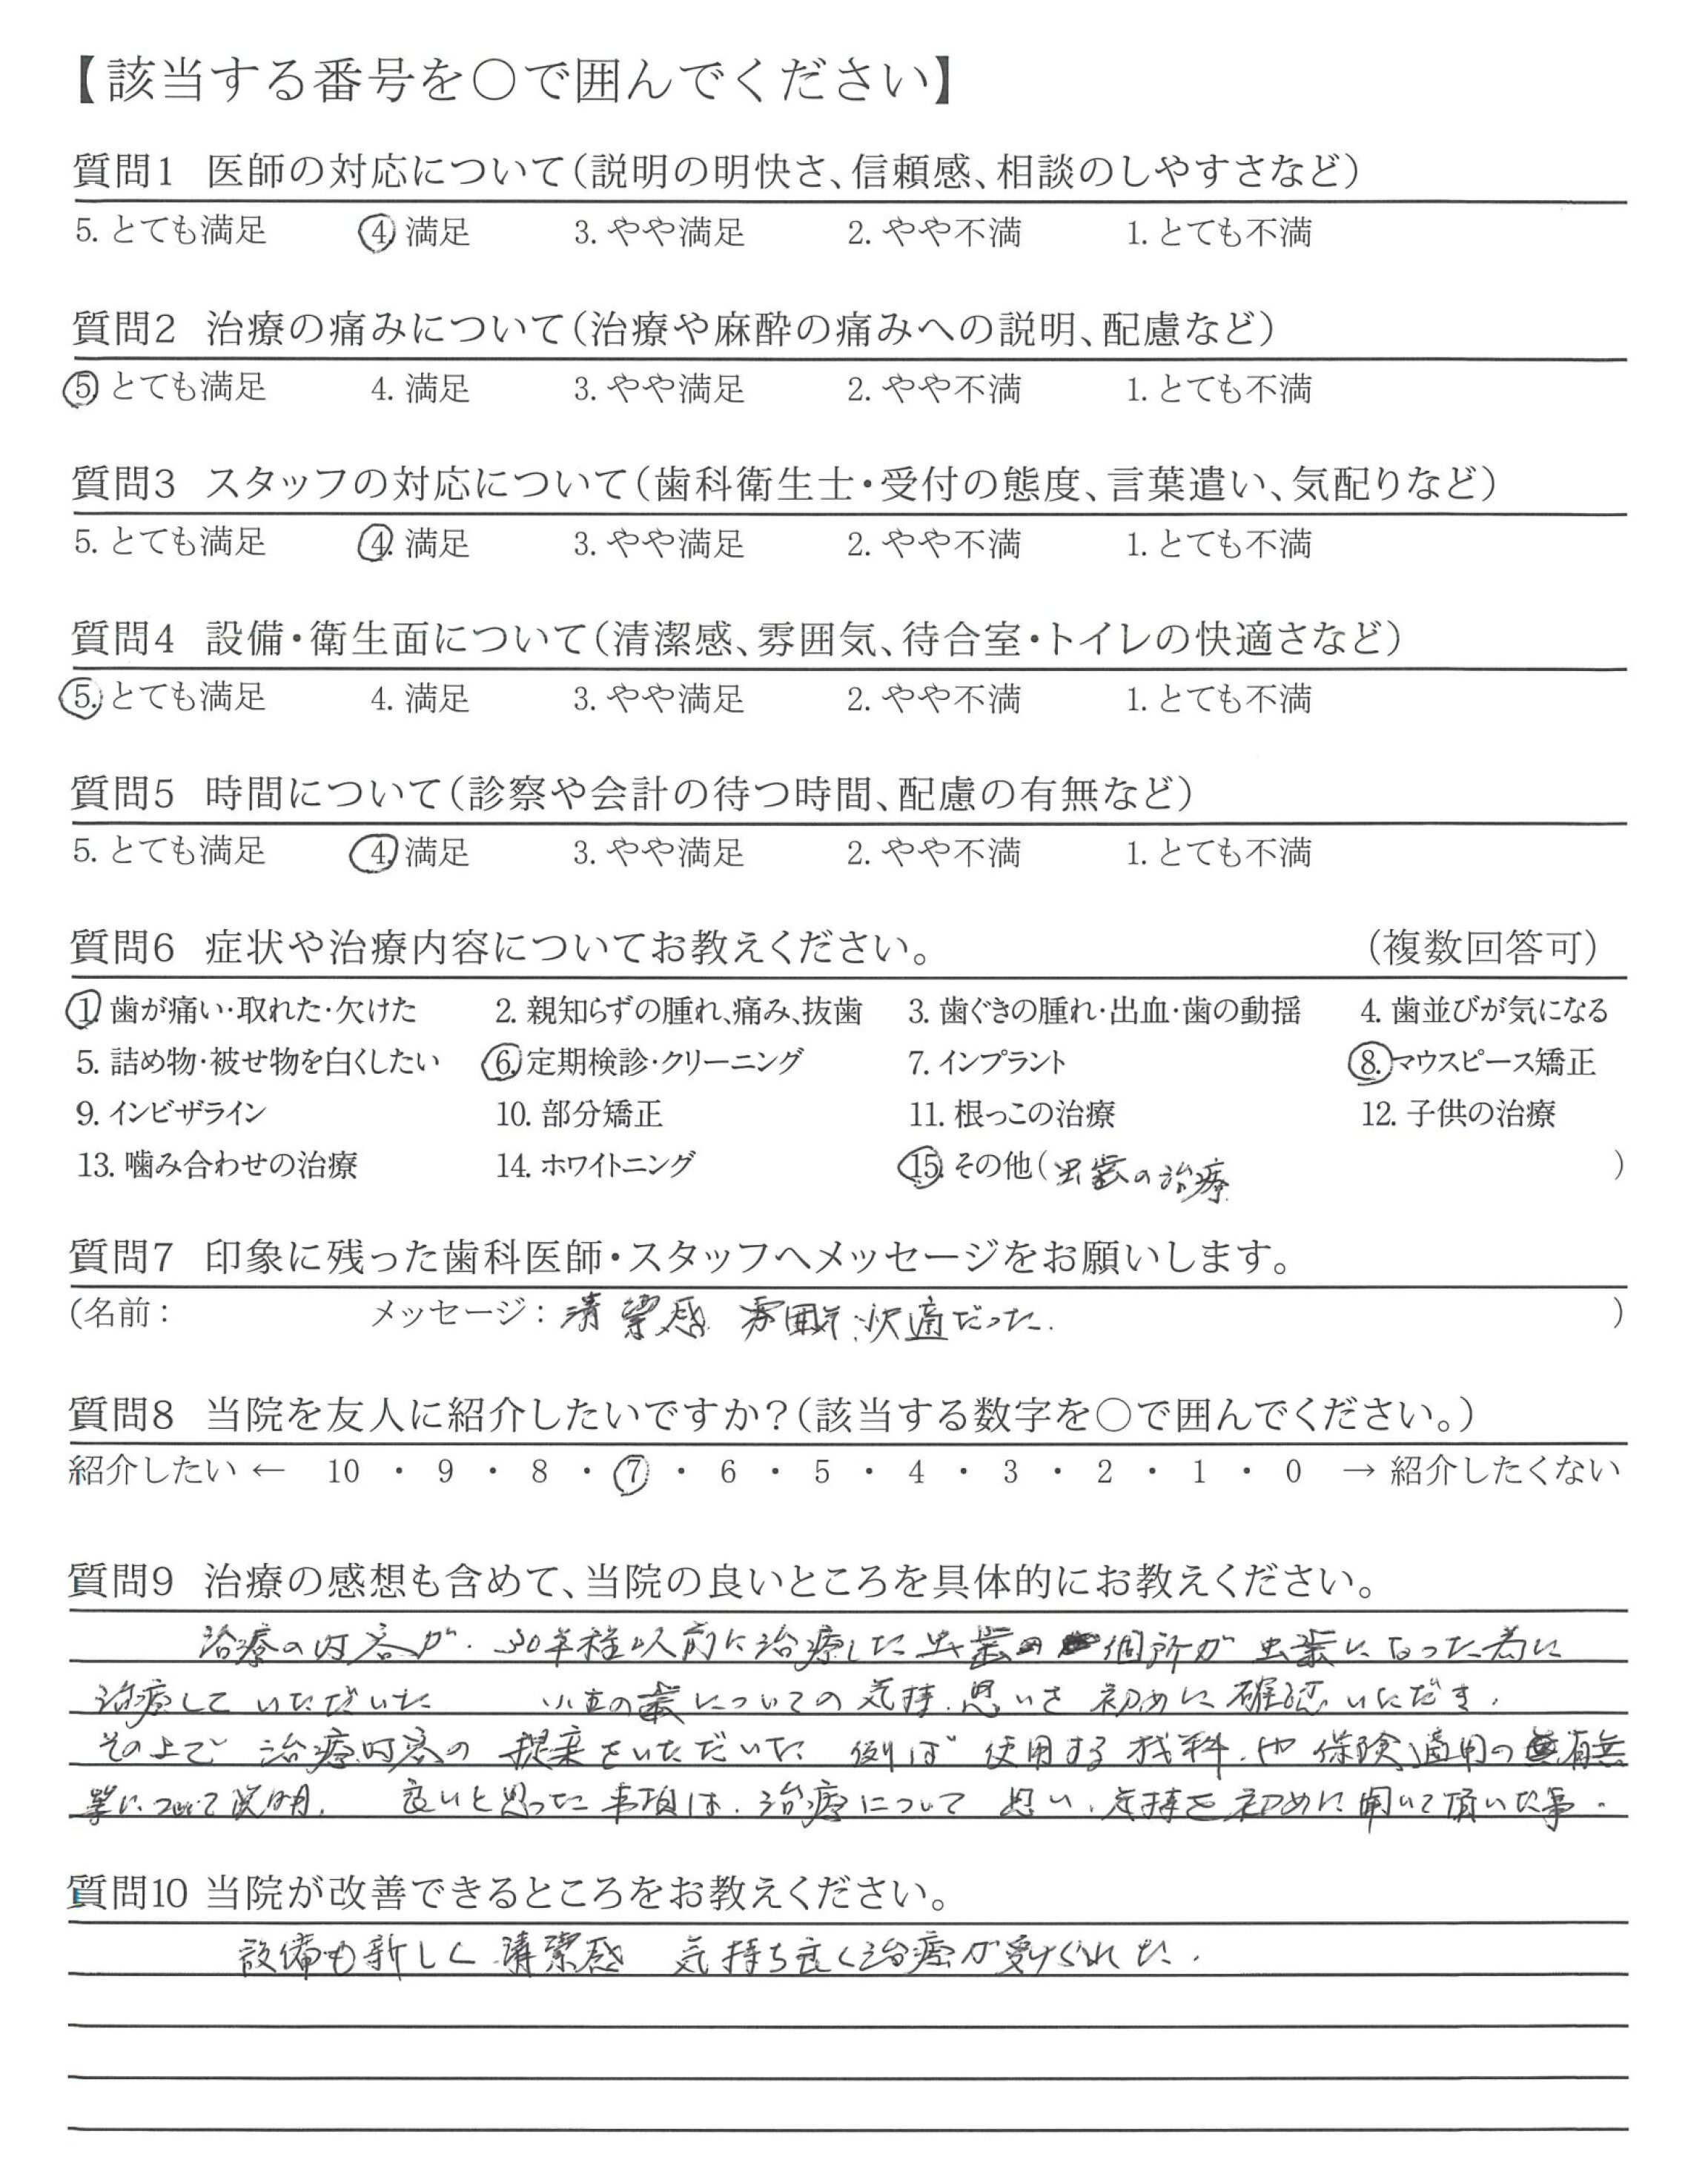 【該当する番号を○で囲んでください】
質問1 医師の対応について（説明の明快さ、信頼感、相談のしやすさなど）
5. とても満足 4. 満足 3. やや満足 2. やや不満 1. とても不満
質問2 治療の痛みについて（治療や麻酔の痛みへの説明、配慮など）
5. とても満足 4. 満足 3. やや満足 2. やや不満 1. とても不満
質問3 スタッフの対応について（歯科衛生士・受付の態度、言葉遣い、気配りなど）
5. とても満足 4. 満足 3. やや満足 2. やや不満 1. とても不満
質問4 設備・衛生面について（清潔感、雰囲気、待合室・トイレの快適さなど）
5. とても満足 4. 満足 3. やや満足 2. やや不満 1. とても不満
質問5 時間について（診察や会計の待つ時間、配慮の有無など）
5. とても満足 4. 満足 3. やや満足 2. やや不満 1. とても不満
質問6 症状や治療内容についてお教えください。 （複数回答可）
1. 歯が痛い・取れた・欠けた 2. 親知らずの腫れ、痛み、抜歯 3. 歯ぐきの腫れ・出血・歯の動揺 4. 歯並びが気になる
5. 詰め物・被せ物を白くしたい 6. 定期検診・クリーニング 7. インプラント 8. マウスピース矯正
9. インビザライン 10. 部分矯正 11. 根っこの治療 12. 子供の治療
13. 噛み合わせの治療 14. ホワイトニング 15. その他（虫歯の治療 ）
質問7 印象に残った歯科医師・スタッフへメッセージをお願いします。
（名前： メッセージ：清潔感 雰囲気 快適だった. ）
質問8 当院を友人に紹介したいですか？（該当する数字を○で囲んでください。）
紹介したい ← 10 ・ 9 ・ 8 ・ 7 ・ 6 ・ 5 ・ 4 ・ 3 ・ 2 ・ 1 ・ 0 → 紹介したくない
質問9 治療の感想も含めて、当院の良いところを具体的にお教えください。
治療の内容が. 30年程以前に治療した虫歯の個所が 虫歯になった為に
治療していただいた の歯についての気持.思いを 初めに 確認いただき.
その上で 治療内容の 提案をいただいた 例ば 使用する 材料.や 保険適用の有無
等について説明. 良いと思った事項は. 治療について 思い.気持を初めに聞いて頂いた事.
質問10 当院が改善できるところをお教えください。
設備も新しく.清潔感 気持ち良く治療が受けられた.